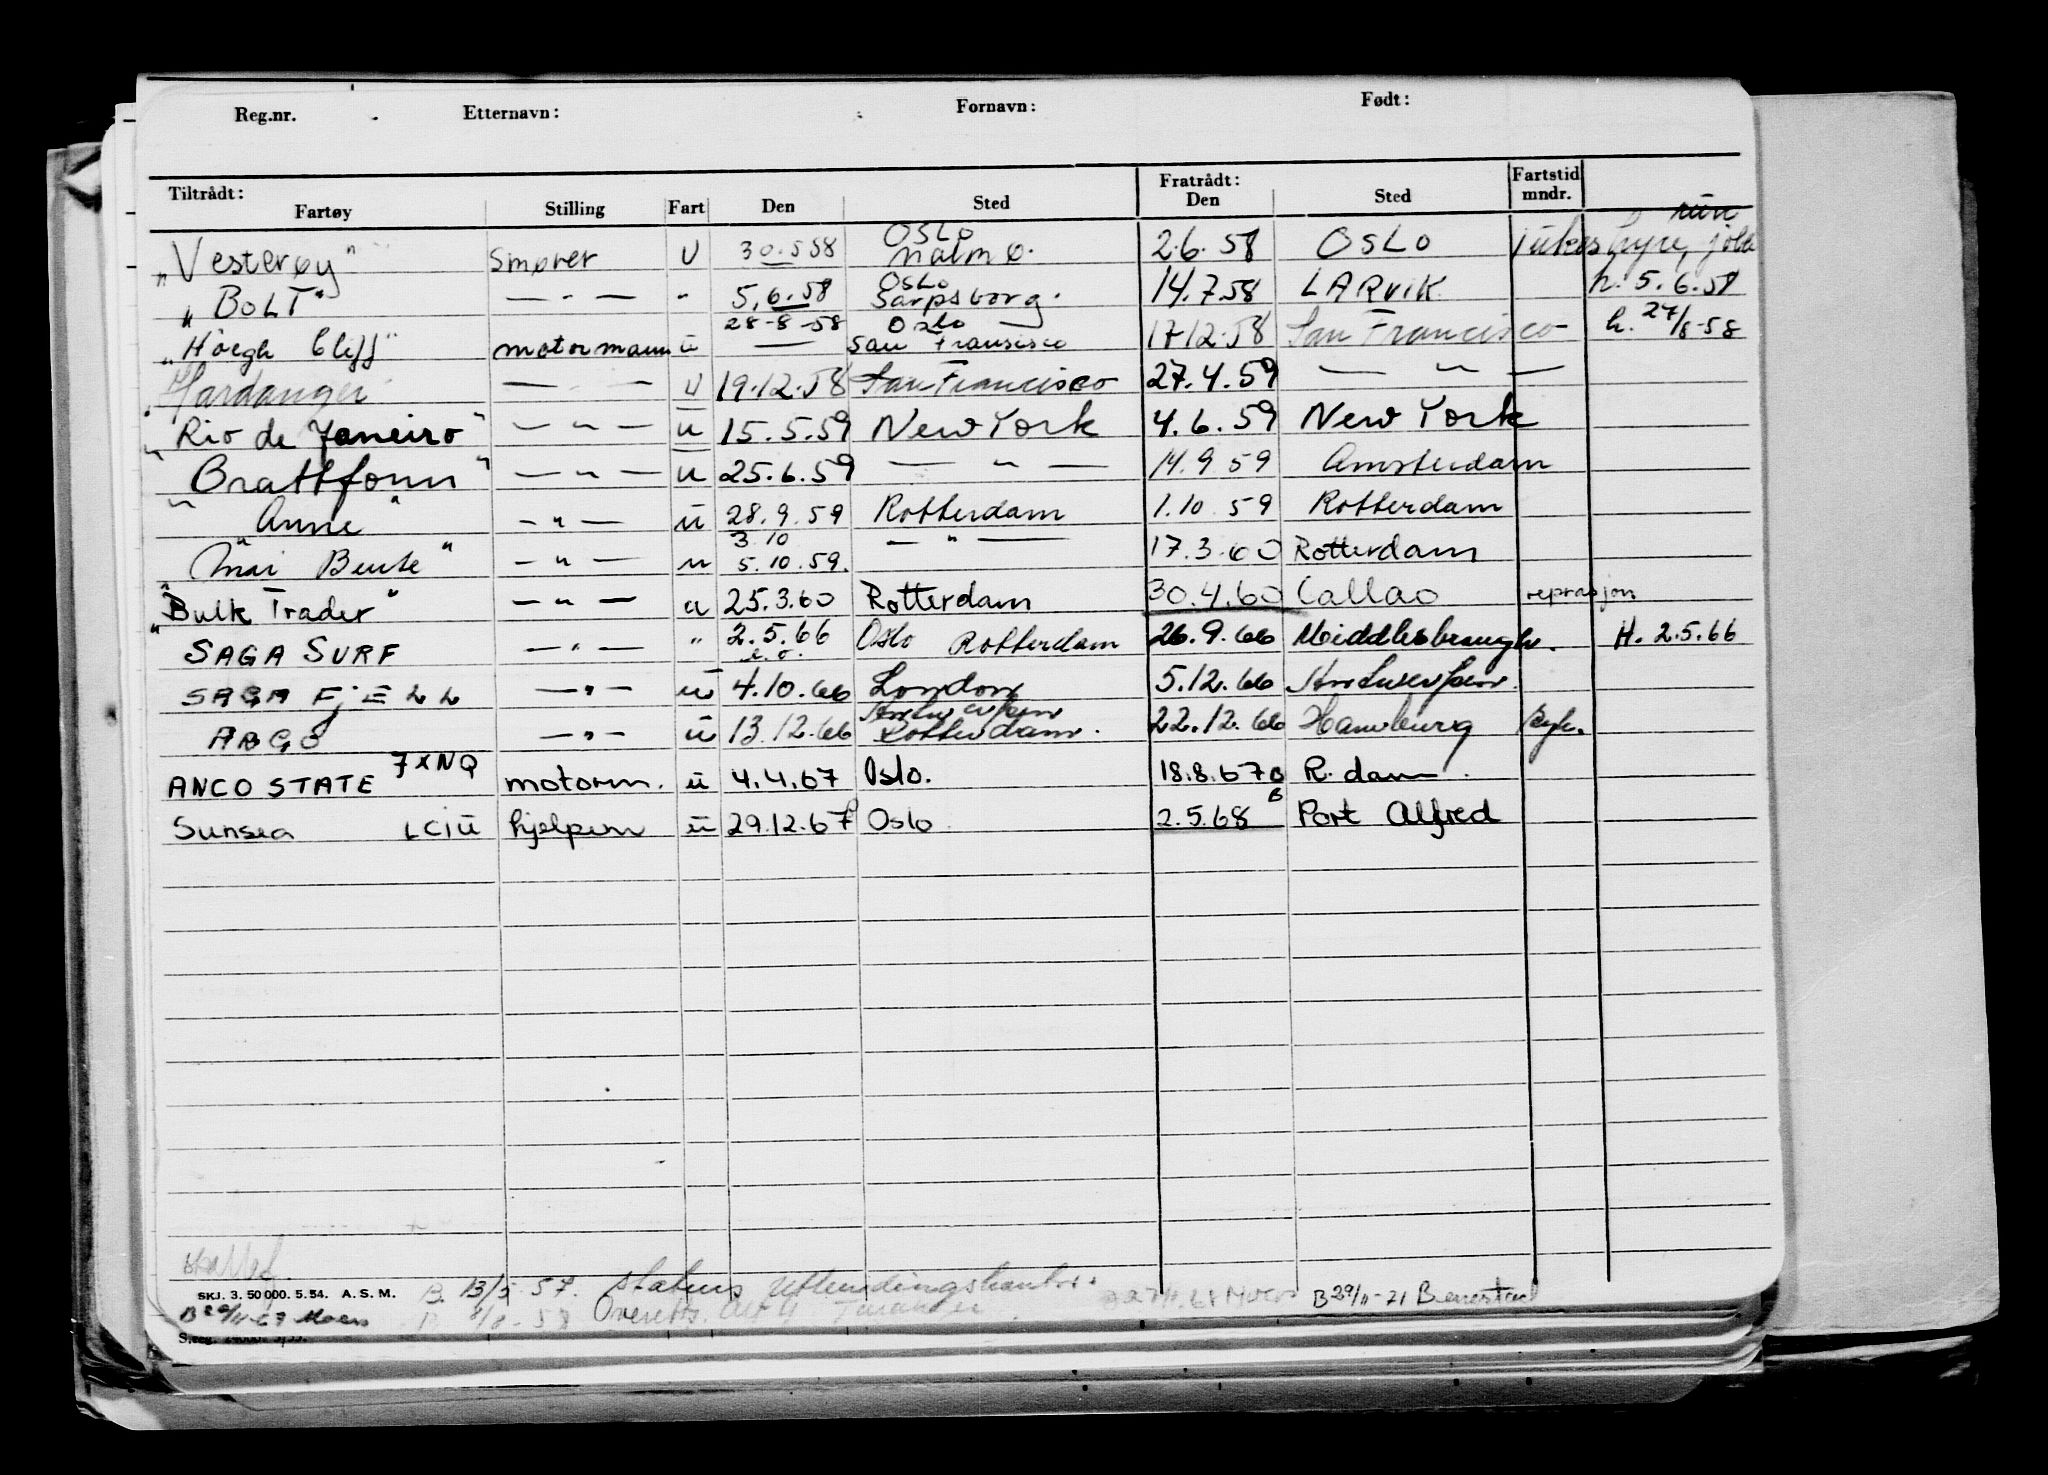 Reg.nr. Etternavn: Fornavn: Født:
Tiltrådt: Fratrådt: Fartstid
Fartøy Stilling Fart Den Sted Den Sted mndr.
run
Oslo
"Vesterøy" Smører U 30.5.58 Malmø. 2.6.58 OSLO hyre, jobb
Oslo
"BOLT" — " — " 5.6.58 Sarpsborg. 14.7.58 LARVIK h. 5.6.58
28-8-58 Oslo
"Høegh Cliff" motormann ū — San Fransisco 17-12-58 San Francisco h. 27/8-58
Hardanger — " — U 19.12.58 San Francisco 27.4.59 — " —
"Rio de Janeiro" — " — ū 15.5.59 New York 4.6.59 New York
"Brattfonn" — " — ū 25.6.59 — " — 14.9.59 Amsterdam
"Anne" — " — ū 28.9.59 Rotterdam 1.10.59 Rotterdam
3.10
"Mai Bente" — " — u 5.10.59. — " — 17.3.60 Rotterdam
"Bulk Trader" — " — u 25.3.60 Rotterdam 30.4.60 Callao reprasjon
SAGA SURF — " — " 2.5.66 Oslo Rotterdam 26.9.66 Middlesbrough. H. 2.5.66
SAGA FJELL — " — ū 4.10.66 London 5.12.66 Antwerpen.
Antwerpen
ABGO — " — ū 13.12.66 Rotterdam. 22.12.66 Hamburg Syk.
ANCO STATE 7XNQ motorm. ū 4.4.67 Oslo. 18.8.67 B R.dam.
Sunsea LCIU hjelpem ū 29.12.67 Oslo 2.5.68 B Port Alfred
SKJ. 3. 50 000. 5. 54. A. S. M. B. 13/5-57. Statens Utlendingskontor.
B 29/11-71 Benestad